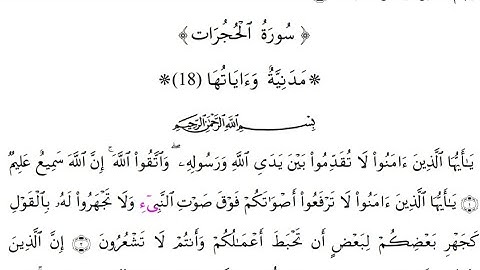 ﴿ سُورَةُ ٱلْحُجُرَات ﴾
* مَدَنِيَّةٌ وَءَايَاتُهَا (18) *
بِسْمِ ٱللَّهِ ٱلرَّحْمَٰنِ ٱلرَّحِيمِ
يَٰٓأَيُّهَا ٱلَّذِينَ ءَامَنُوا۟ لَا تُقَدِّمُوا۟ بَيْنَ يَدَىِ ٱللَّهِ وَرَسُولِهِۦ ۖ وَٱتَّقُوا۟ ٱللَّهَ ۚ إِنَّ ٱللَّهَ سَمِيعٌ عَلِيمٌ
۝١ يَٰٓأَيُّهَا ٱلَّذِينَ ءَامَنُوا۟ لَا تَرْفَعُوٓا۟ أَصْوَٰتَكُمْ فَوْقَ صَوْتِ ٱلنَّبِىٓءِ وَلَا تَجْهَرُوا۟ لَهُۥ بِٱلْقَوْلِ
كَجَهْرِ بَعْضِكُمْ لِبَعْضٍ أَن تَحْبَطَ أَعْمَٰلُكُمْ وَأَنتُمْ لَا تَشْعُرُونَ ۝٢ إِنَّ ٱلَّذِينَ